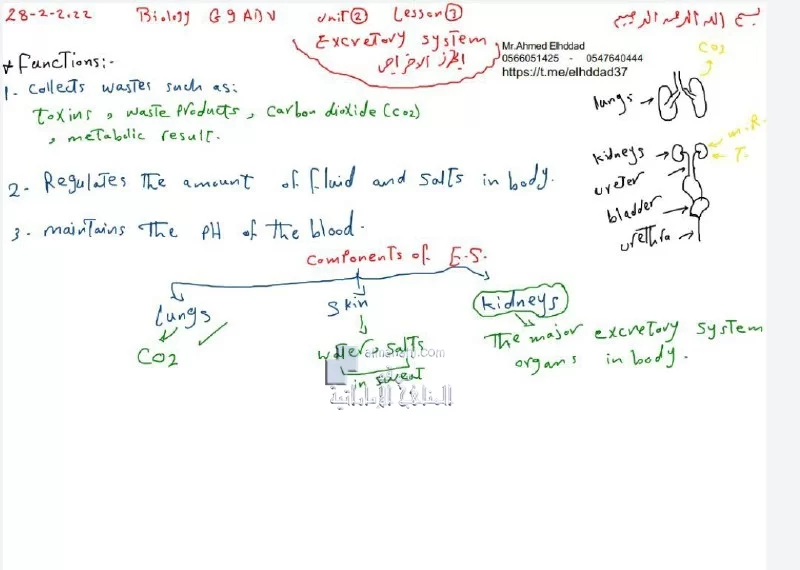 28-2-2022 Biology G9 ADV Unit② Lesson③ بسم الله الرحمن الرحيم
Excretory system
الجهاز الاخراجي
Mr.Ahmed Elhddad
0566051425 - 0547640444
https://t.me/elhddad37
* Functions:-
1- Collects wastes such as:
toxins, waste products, carbon dioxide (CO2)
, metabolic result.
2- Regulates the amount of fluid and salts in body.
3- maintains the pH of the blood.
CO2
lungs
m.R.
kidneys
T.
ureter
bladder
urethra
Components of E.S.
lungs skin kidneys
CO2
water, salts
in sweat
The major excretory system
organs in body.
almanahj.com
موقع
المناهج الإماراتية